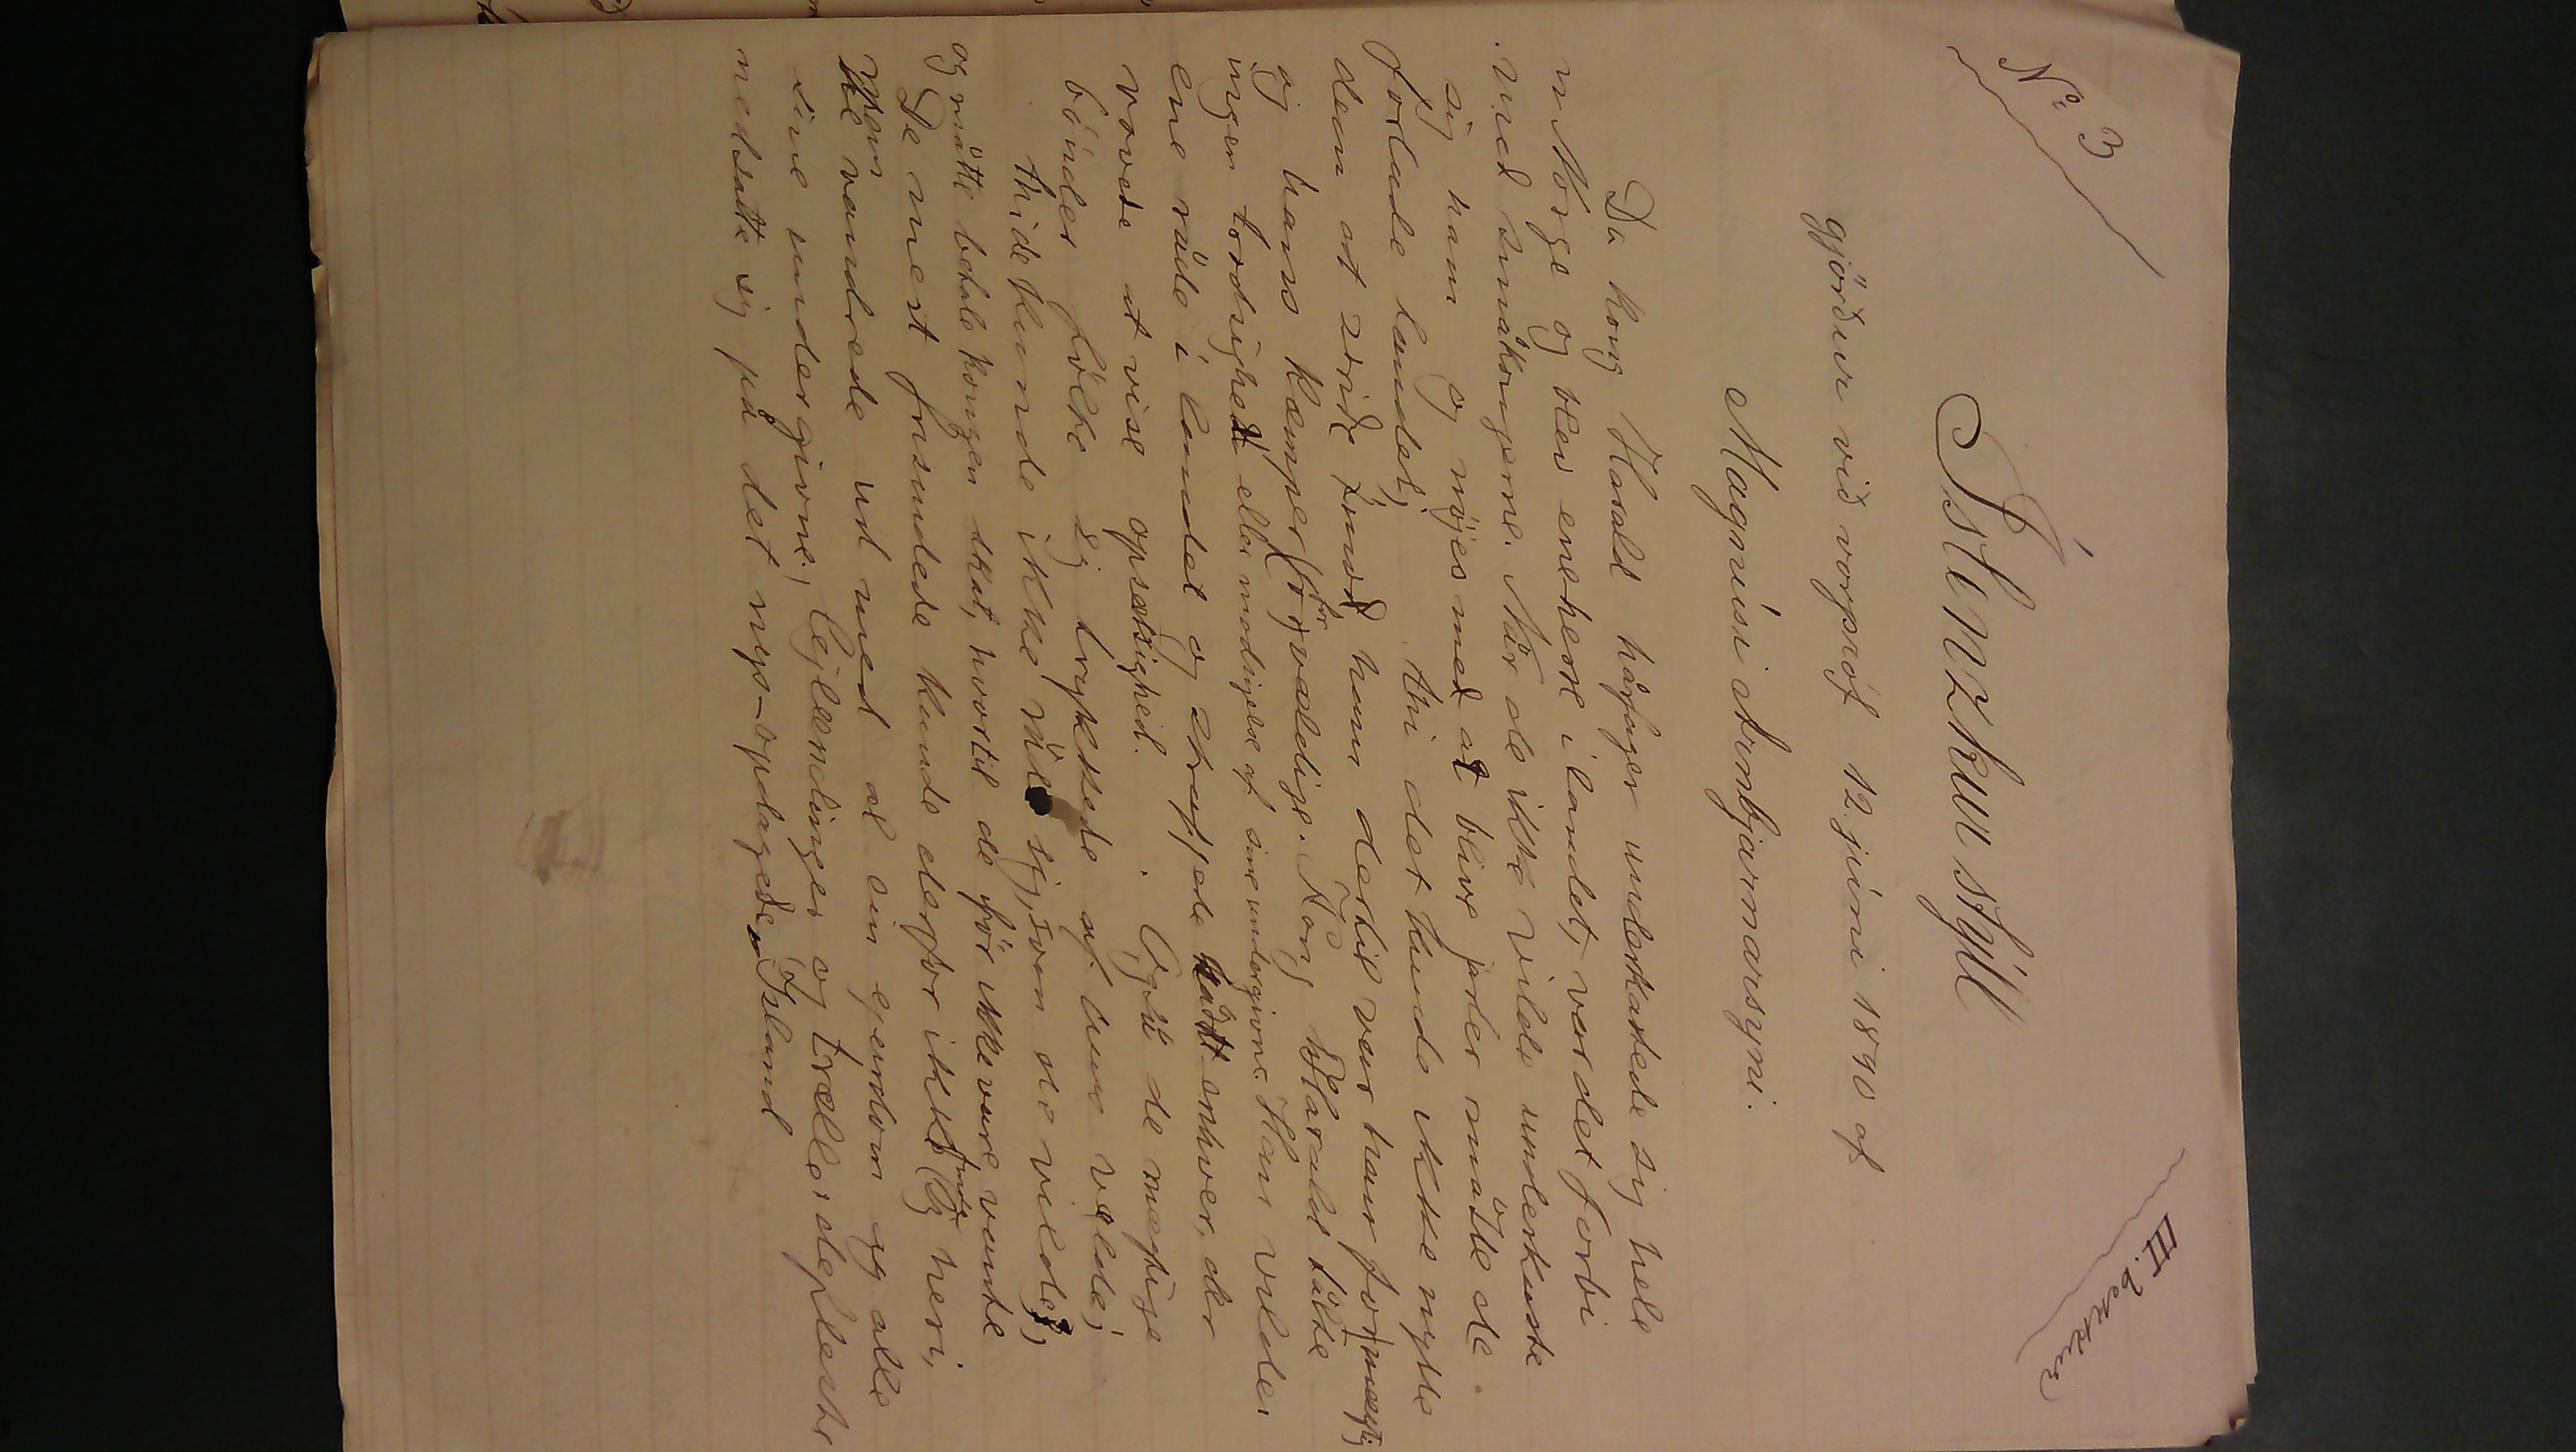 No 3
III. bekkur
Íslenzkur stýll
gjörður við vorpróf 12. júni 1890 af
Magnúsi Arnbjarnarsyni.
Da kong Harald hårfager underkastede sig hele
Norge og blev eneherre i landet, var det forbi
med småkongerne. Når de ikke vilde underkaste
sig ham og nöjes med at blive jarler måtte de
forlade landet; thi det kunde ikke nytte
dem at stride imod ham dertil var han for mægtig
og hans kæmper for vældige. Kong Harald tålte
ingen trodsighed eller modsigelse af sine undergivne. Han vilde
ene råde i landet og straffede hårdt enhver, der
vovede at vise opsætsighed. Også de mægtige
bönder fölte sig trykkede af hans vælde;
thi de kunde ikke råde sig, som de vilde,
og måtte betale kongen skat, hvortil de för ikke vare vante
De mest frisindede kunde derfor ikke finde sig heri,
men vandrede ud med al sin ejendom og alle
sine undergivne, lejlændinger og trælle; de fleste
nedsatte sig på det nys-opdagede Island